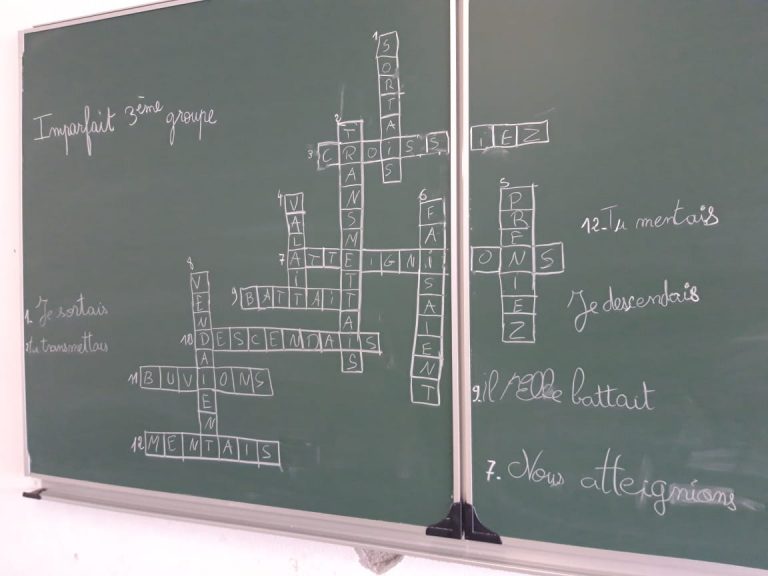 Imparfait 3ème groupe
1 SORTAIS
2 TRANSMETTAIS
3 CROISSIEZ
4 VALAIT
5 PRENIEZ
6 FAISAIENT
7 ATTEIGNIONS
8 VENDAIENT
9 BATTAIT
10 DESCENDAIS
11 BUVIONS
12 MENTAIS
1. Je sortais
2 tu transmettais
12. Tu mentais
Je descendais
9. il / elle battait
7. Nous atteignions